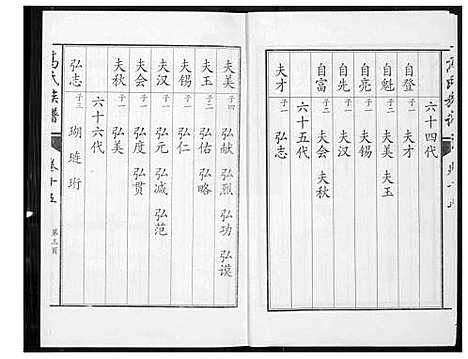 六十四代
自登 子一 夫才
自魁 子二 夫美 夫玉
自亮 子一 夫锡
自先 子一 夫汉
自富 子二 夫会 夫秋
六十五代
夫才 子一 弘志
夫美 子四 弘献 弘烈 弘功 弘谟
夫玉 子二 弘佑 弘略
夫锡 子一 弘仁
夫汉 子三 弘元 弘减 弘范
夫会 子二 弘度 弘贯
夫秋 子一 弘美
六十六代
弘志 子三 瑚 琏 珩
氏族谱 卷十五 第三页